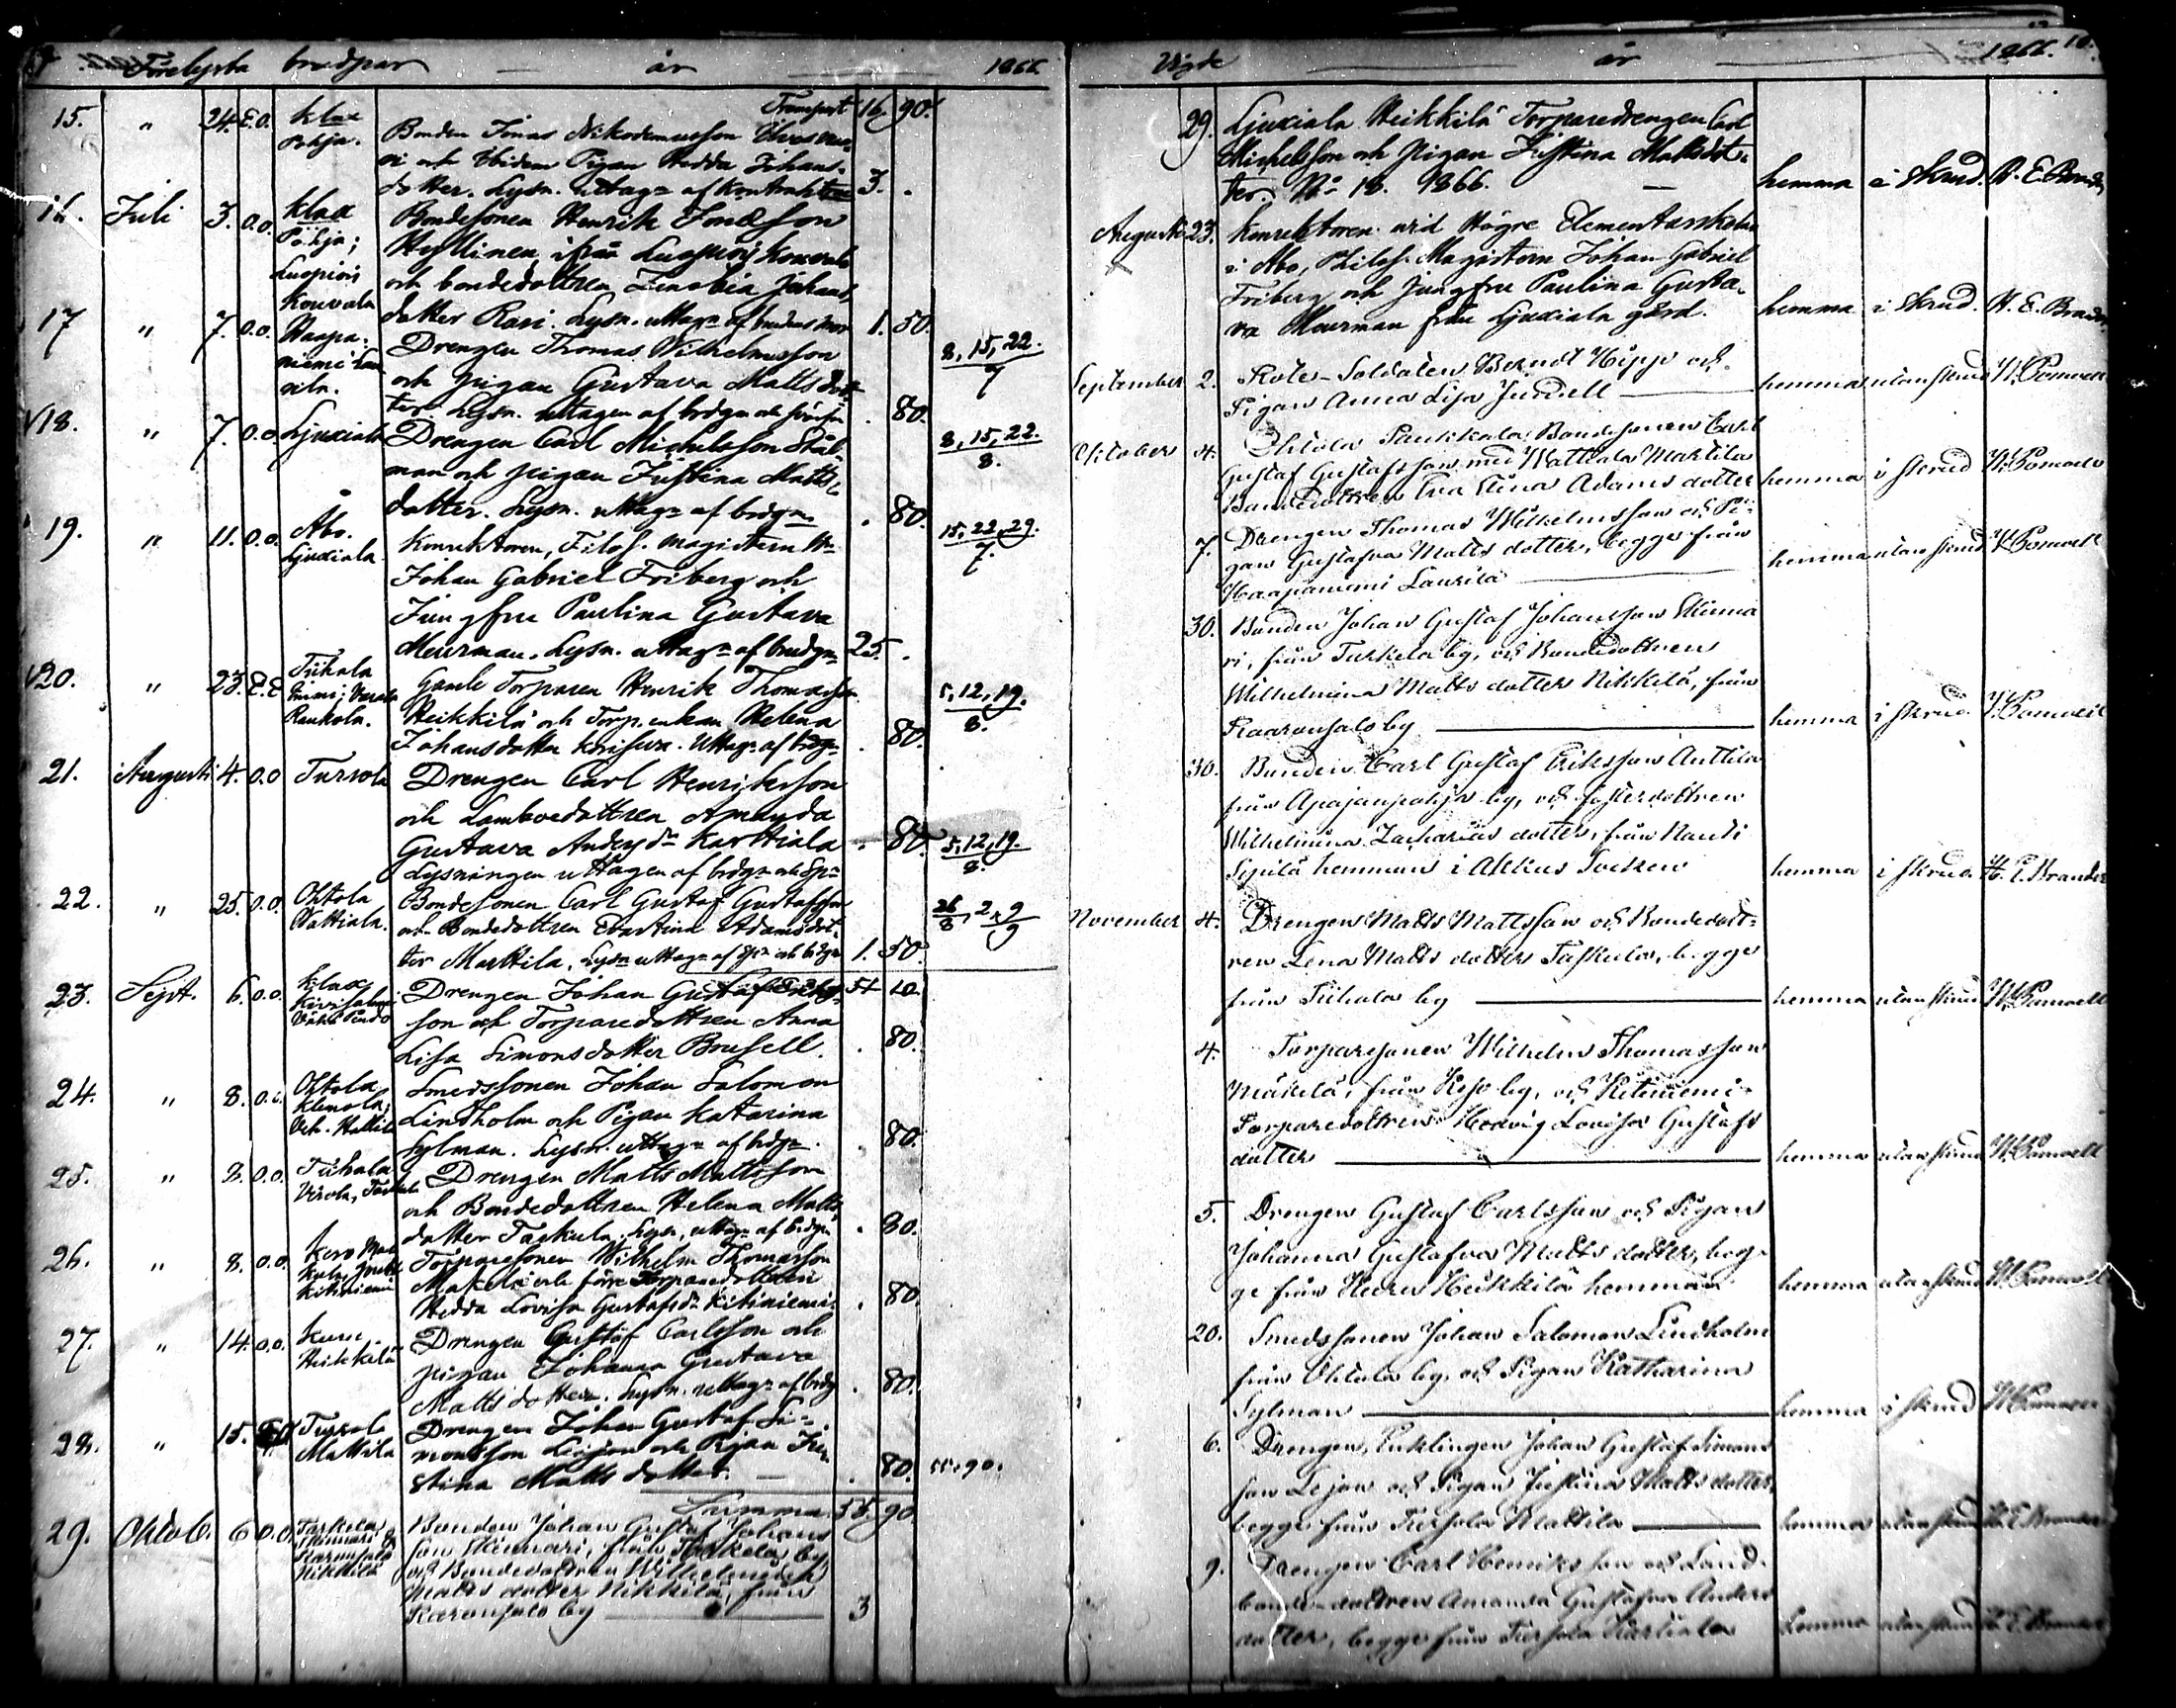 Förelysta brudpar år 1866.
Transport 16 90.
15. " 24. E.O. Klax Pohja. Bonden Jonas Nikodemusson
och Ibidem Pigan Hedda Johans-
dotter. Lysn. uttagn af Kontrahten 3.
16. Juli 3. O.O. Klax Pohja; Luopiois Kouvala Bondesonen Henrik Jonasson
Hellinen, ifrån Luopiois Kouvala
och bondedottren Zenobia Johans
dotter Rasi. Lysn. uttagn af 1. 50.
17 " 7. O.O. Haapa-niemi Lau-rila. Drengen Thomas Wilhelmsson 8, 15, 22. 7
och pigan Gustava Matts dot-
ter. Lysn. uttagen af brdgn . 80.
18. " 7. O.O. Ljuxiala Drengen Carl Michelsson Stål- 8, 15, 22. 8.
man och pigan Justina Matts
dotter. Lysn. uttagn af brdgn . 80.
19. " 11. O.O. Åbo. Ljuxiala. Konrektoren, Filos. magistern Hr 15, 22, 29. 7
Johan Gabriel Friberg och
Jungfru Paulina Gustava
Meurman. Lysn. uttagn af brudgn 25.
20. " 23. E.E. Tiihala Raukola. Gamle Torparen Henrik Thomasson 5, 12, 19. 8.
Heikkilä och Torp. enkan Helena
Johansdotter. Uttagn af brdgn . 80.
21. Augusti 4. O.O Tursola Drengen Carl Henriksson
och Lamboedottren Amanda
Gustava Andersdr Karttiala . 80. 5, 12, 19. 8.
Lysningen uttagen af brdgn
22. " 25. O.O. Ohtola Wattiala. Bondesonen Carl Gustaf Gustafsson 26/8, 2, 9/9
och Bondedottren Eva Stina Adamsdot-
ter Marttila. Lysn uttagn af 1. 50.
23. Sept. 6. O.O. Klax Drengen Johan Gustaf 51 10.
son och Torparedottren Anna
Lisa Simonsdotter Brusell. . 80.
24. " 8. O.O. Ohtola Smedssonen Johan Salomon
Lindholm och Pigan Katarina
Sylman. Lysn. uttagn af brdgn. . 80.
25. " 8. O.O. Tiihala Drengen Matts Mattsson
och Bondedottren Helena Matts
dotter Taskula. Lysn. uttagn af brdgn . 80.
26. " 8. O.O. Kitiniemi Torparesonen Wilhelm Thomasson
Mäkelä och Torparedottren
Hedda Lovisa Gustafsdr Kitiniemi. . 80
27. " 14. O.O. Kuru Heikkilä Drengen Gustaf Carlsson och
pigan Johanna Gustava
Matts dotter. Lysn. uttagn af brdg . 80.
28. " 15. Tursola Mattila Drengen Johan Gustaf Si-
monsson Lejon och Pigan Ju-
stina Matts dotter. . 80. 55. 90.
Summa 55. 90
29. Oktob. 6 O.O. Turkela Kinnari Bonden Johan Gustaf Johans
son Kinnari, från Turkela by,
och Bondedottren Wilhelmina
Matts dotter Nikkilä, från
by 3
Vigde år 1866.
29. Ljuxiala Heikkilä Torparedrengen Carl
Michelsson och pigan Justina Mattsdot-
ter. No 18. 1866. hemma i skrud.
Augusti 23. Konrektoren vid Högre Elementarskolan
i Åbo, Philos. Magistern Johan Gabriel
Friberg och Jungfru Paulina Gusta-
va Meurman från Ljuxiala gård. hemma i skrud. H. E. Brander
September 2. Rote-Soldaten Berndt Hipp och
Pigan Anna Lisa hemma utan skrud
Oktober 4. Ohtola Bondesonen Carl
Gustaf Gustafsson med Wattiala Marttila
Bondedottren Eva Stina Adams dotter hemma i skrud
7. Drengen Thomas Wilhelmsson och Pi-
gan Gustafva Matts dotter, begge från
Haapaniemi Laurila hemma utan skrud
30. Bonden Johan Gustaf Johansson Kinna
ri, från Turkela by, och Bondedottren
Wilhelmina Matts dotter Nikkilä, från
by hemma i skrud
30. Bonden Carl Gustaf Eriksson Anttila
från Apajanpohja by, och fosterdottren
Wilhelmina Zacharias dotter, från
Sipilä hemman i Socken hemma i skrud H. E. Brander
November 4. Drengen Matts Mattsson och Bondedott-
ren Lena Matts dotter Taskula, begge
från Tiihala by hemma utan skrud
4. Torparesonen Wilhelm Thomasson
Mäkelä, från by, och Kitiniemi
Torparedottren Hedvig Lovisa Gustafs
dotter hemma utan skrud
5. Drengen Gustaf Carlsson och Pigan
Johanna Gustafva Matts dotter, beg-
ge från Heikkilä hemman hemma utan skrud
20. Smedssonen Johan Salomon Lindholm
från Ohtola by, och Pigan Katharina
Sylman hemma i skrud
6. Drengen, Johan Gustaf Simons
son Lejon och Pigan Justina Matts dotter,
begge från Tursola Mattila hemma utan skrud H. E. Brander
9. Drengen Carl Henriksson och Land-
bonde-dottren Amanda Gustafva Anders
dotter, begge från Tursola Karttiala hemma utan skrud H. E. Brander